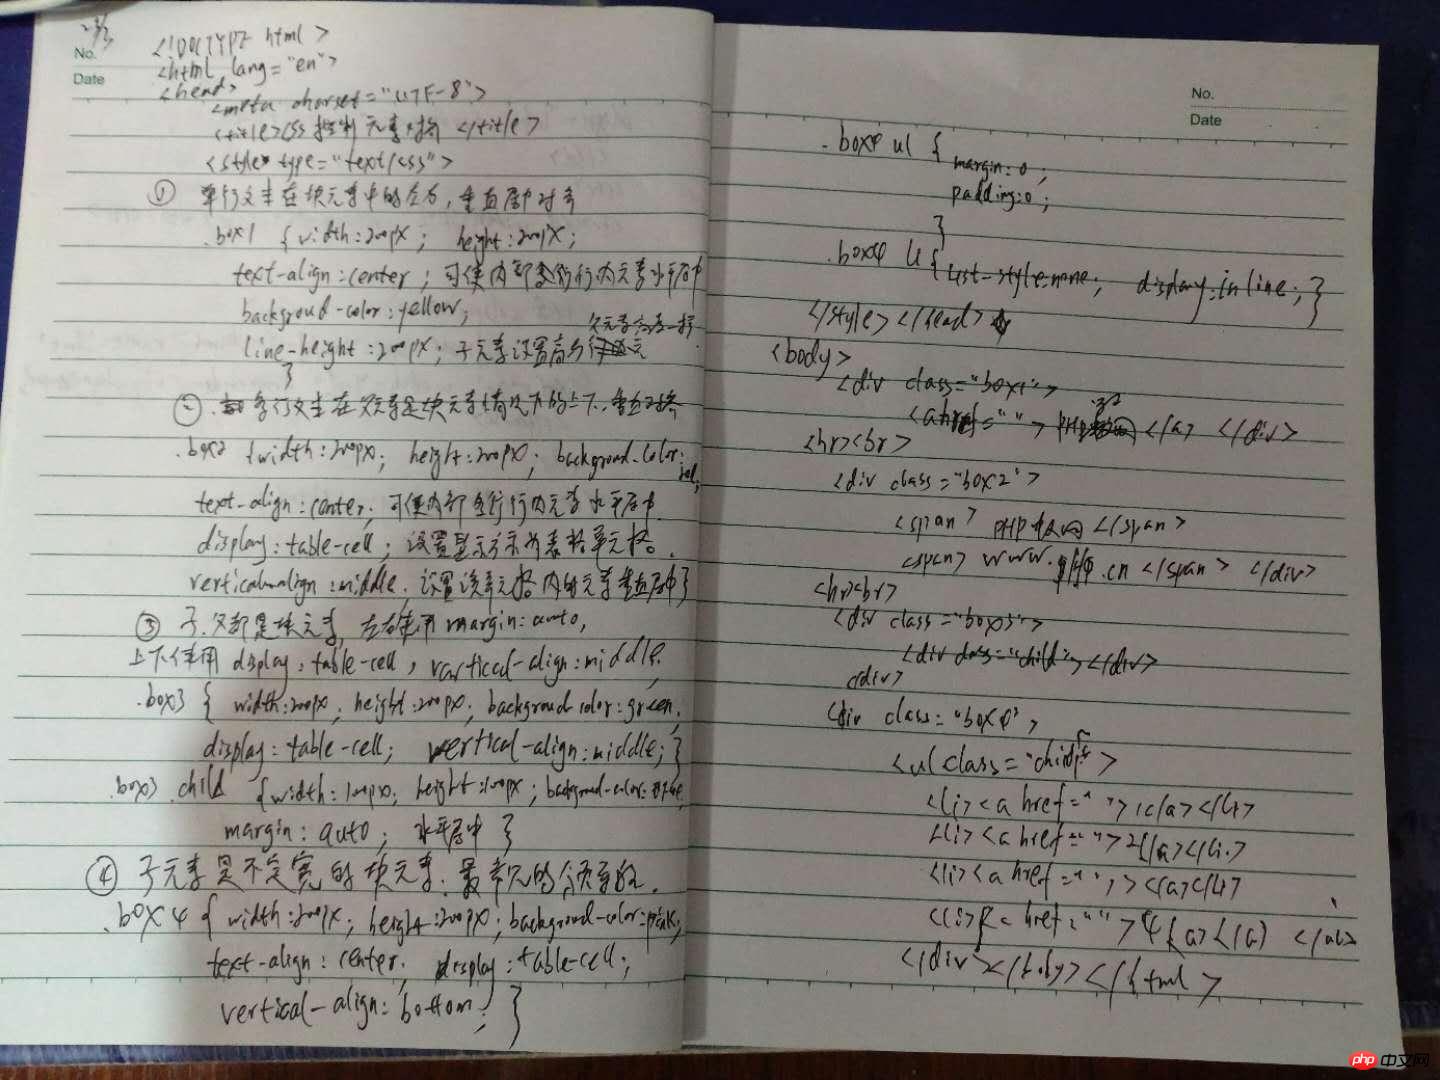 No.
Date
<!DOCTYPE html>
<html lang="en">
<head>
<meta charset="UTF-8">
<title>CSS控制元素对齐</title>
<style type="text/css">
① 单行文本在块元素中的左右,垂直居中对齐
.box1 {width:200px; height:200px;
text-align:center; 可使内部行内元素水平居中
backgroud-color:yellow;
父元素高度一样
line-height:200px; 子元素设置高与
}
② 多行文本在父元素是块元素情况下的上下.垂直对齐
.box2 {width:200px; height:200px; background-color:
red;
text-align:center; 可使内部行内元素水平居中
display:table-cell; 设置显示方式为表格单元格.
vertical-align:middle. 设置该单元格内的元素垂直居中}
③ 子.父都是块元素, 左右使用margin:auto,
上下使用display:table-cell, vartical-align:middle.
.box3 { width:200px; height:200px; backgroud color:green,
display:table-cell; vertical-align:middle; }
.box3 .child {width:100px; height:100px; backgroud-color:
margin:auto; 水平居中 }
④ 子元素是不定宽的块元素.最常见的分页导航.
.box4 { width:200px; height:200px; background-color:pink;
text-align:center; display:table-cell;
vertical-align:bottom; }
No.
Date
.box4 ul {
margin:0;
padding:0;
}
.box4 li{
list-style:none; display:inline; }
</style></head>
<body>
<div class="box1">
<a href=""> PHP </a> </div>
<hr><br>
<div class="box2">
<span> PHP中文网</span>
<span> www.php.cn </span> </div>
<hr><br>
<div class="box3">
<div class="child"></div>
</div>
<div class="box4">
<ul class="child">
<li><a href="">1</a></li>
<li><a href="">2</a></li>
<li><a href=""></a></li>
<li>< href="">4</a> </ul>
</div></body></html>
php 中文网